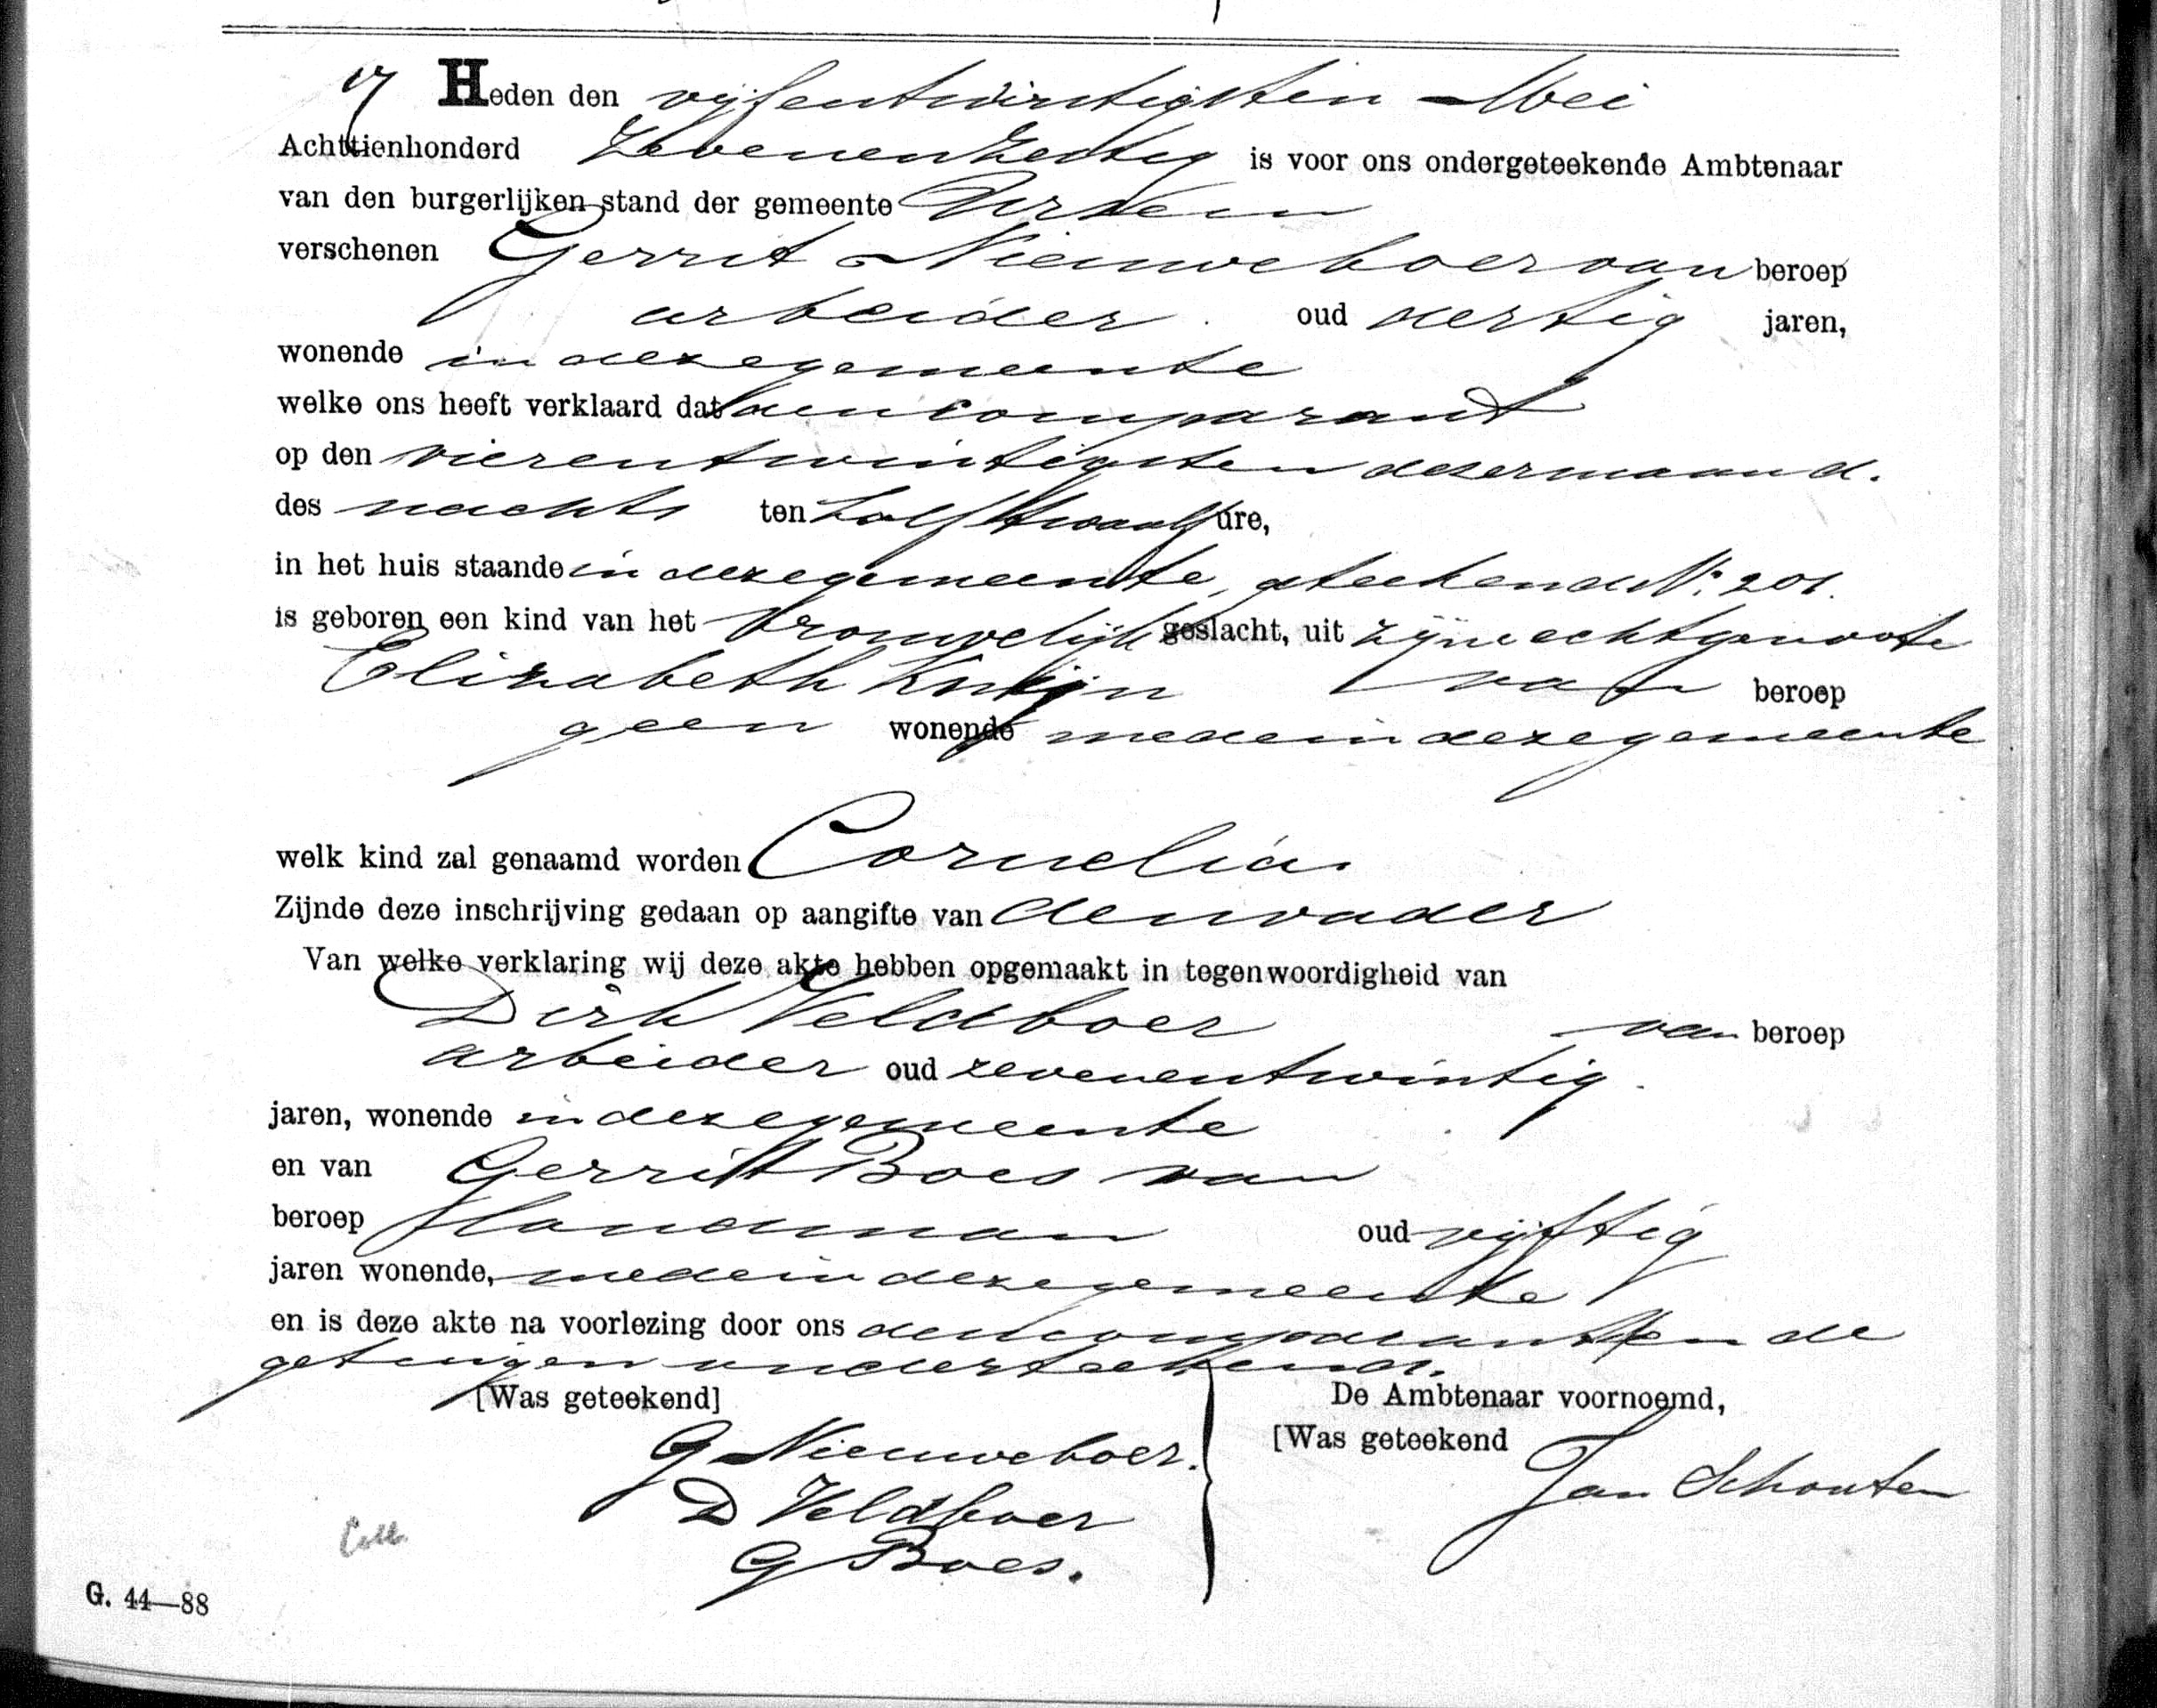 17 Heden den vijfentwintigsten Mei
Achttienhonderd Zevenenzestig is voor ons ondergeteekende Ambtenaar
van den burgerlijken stand der gemeente Ursem
verschenen Gerrit Nieuweboer van beroep
arbeider oud dertig jaren,
wonende in deze gemeente
welke ons heeft verklaard dat den comparant
op den vierentwintigsten dezer maand.
des nachts ten half twaalf ure,
in het huis staande in deze gemeente, geteekend No: 201.
is geboren een kind van het vrouwelijk geslacht, uit zijne echtgenoote
Elizabeth Knijn van beroep
geen wonende mede in deze gemeente
welk kind zal genaamd worden Cornelia.
Zijnde deze inschrijving gedaan op aangifte van den vader
Van welke verklaring wij deze akte hebben opgemaakt in tegenwoordigheid van
Dirk Veldboer van beroep
arbeider oud zevenentwintig.
jaren, wonende in deze gemeente
en van Gerrit Boes van
beroep landman oud vijftig
jaren wonende, mede in deze gemeente
en is deze akte na voorlezing door ons den comparant en de
getuigen onderteekend.
[Was geteekend] De Ambtenaar voornoemd,
G Nieuweboer. [Was geteekend
D Veldboer Jan Schouten
G Boes.
Coll.
G. 44—88